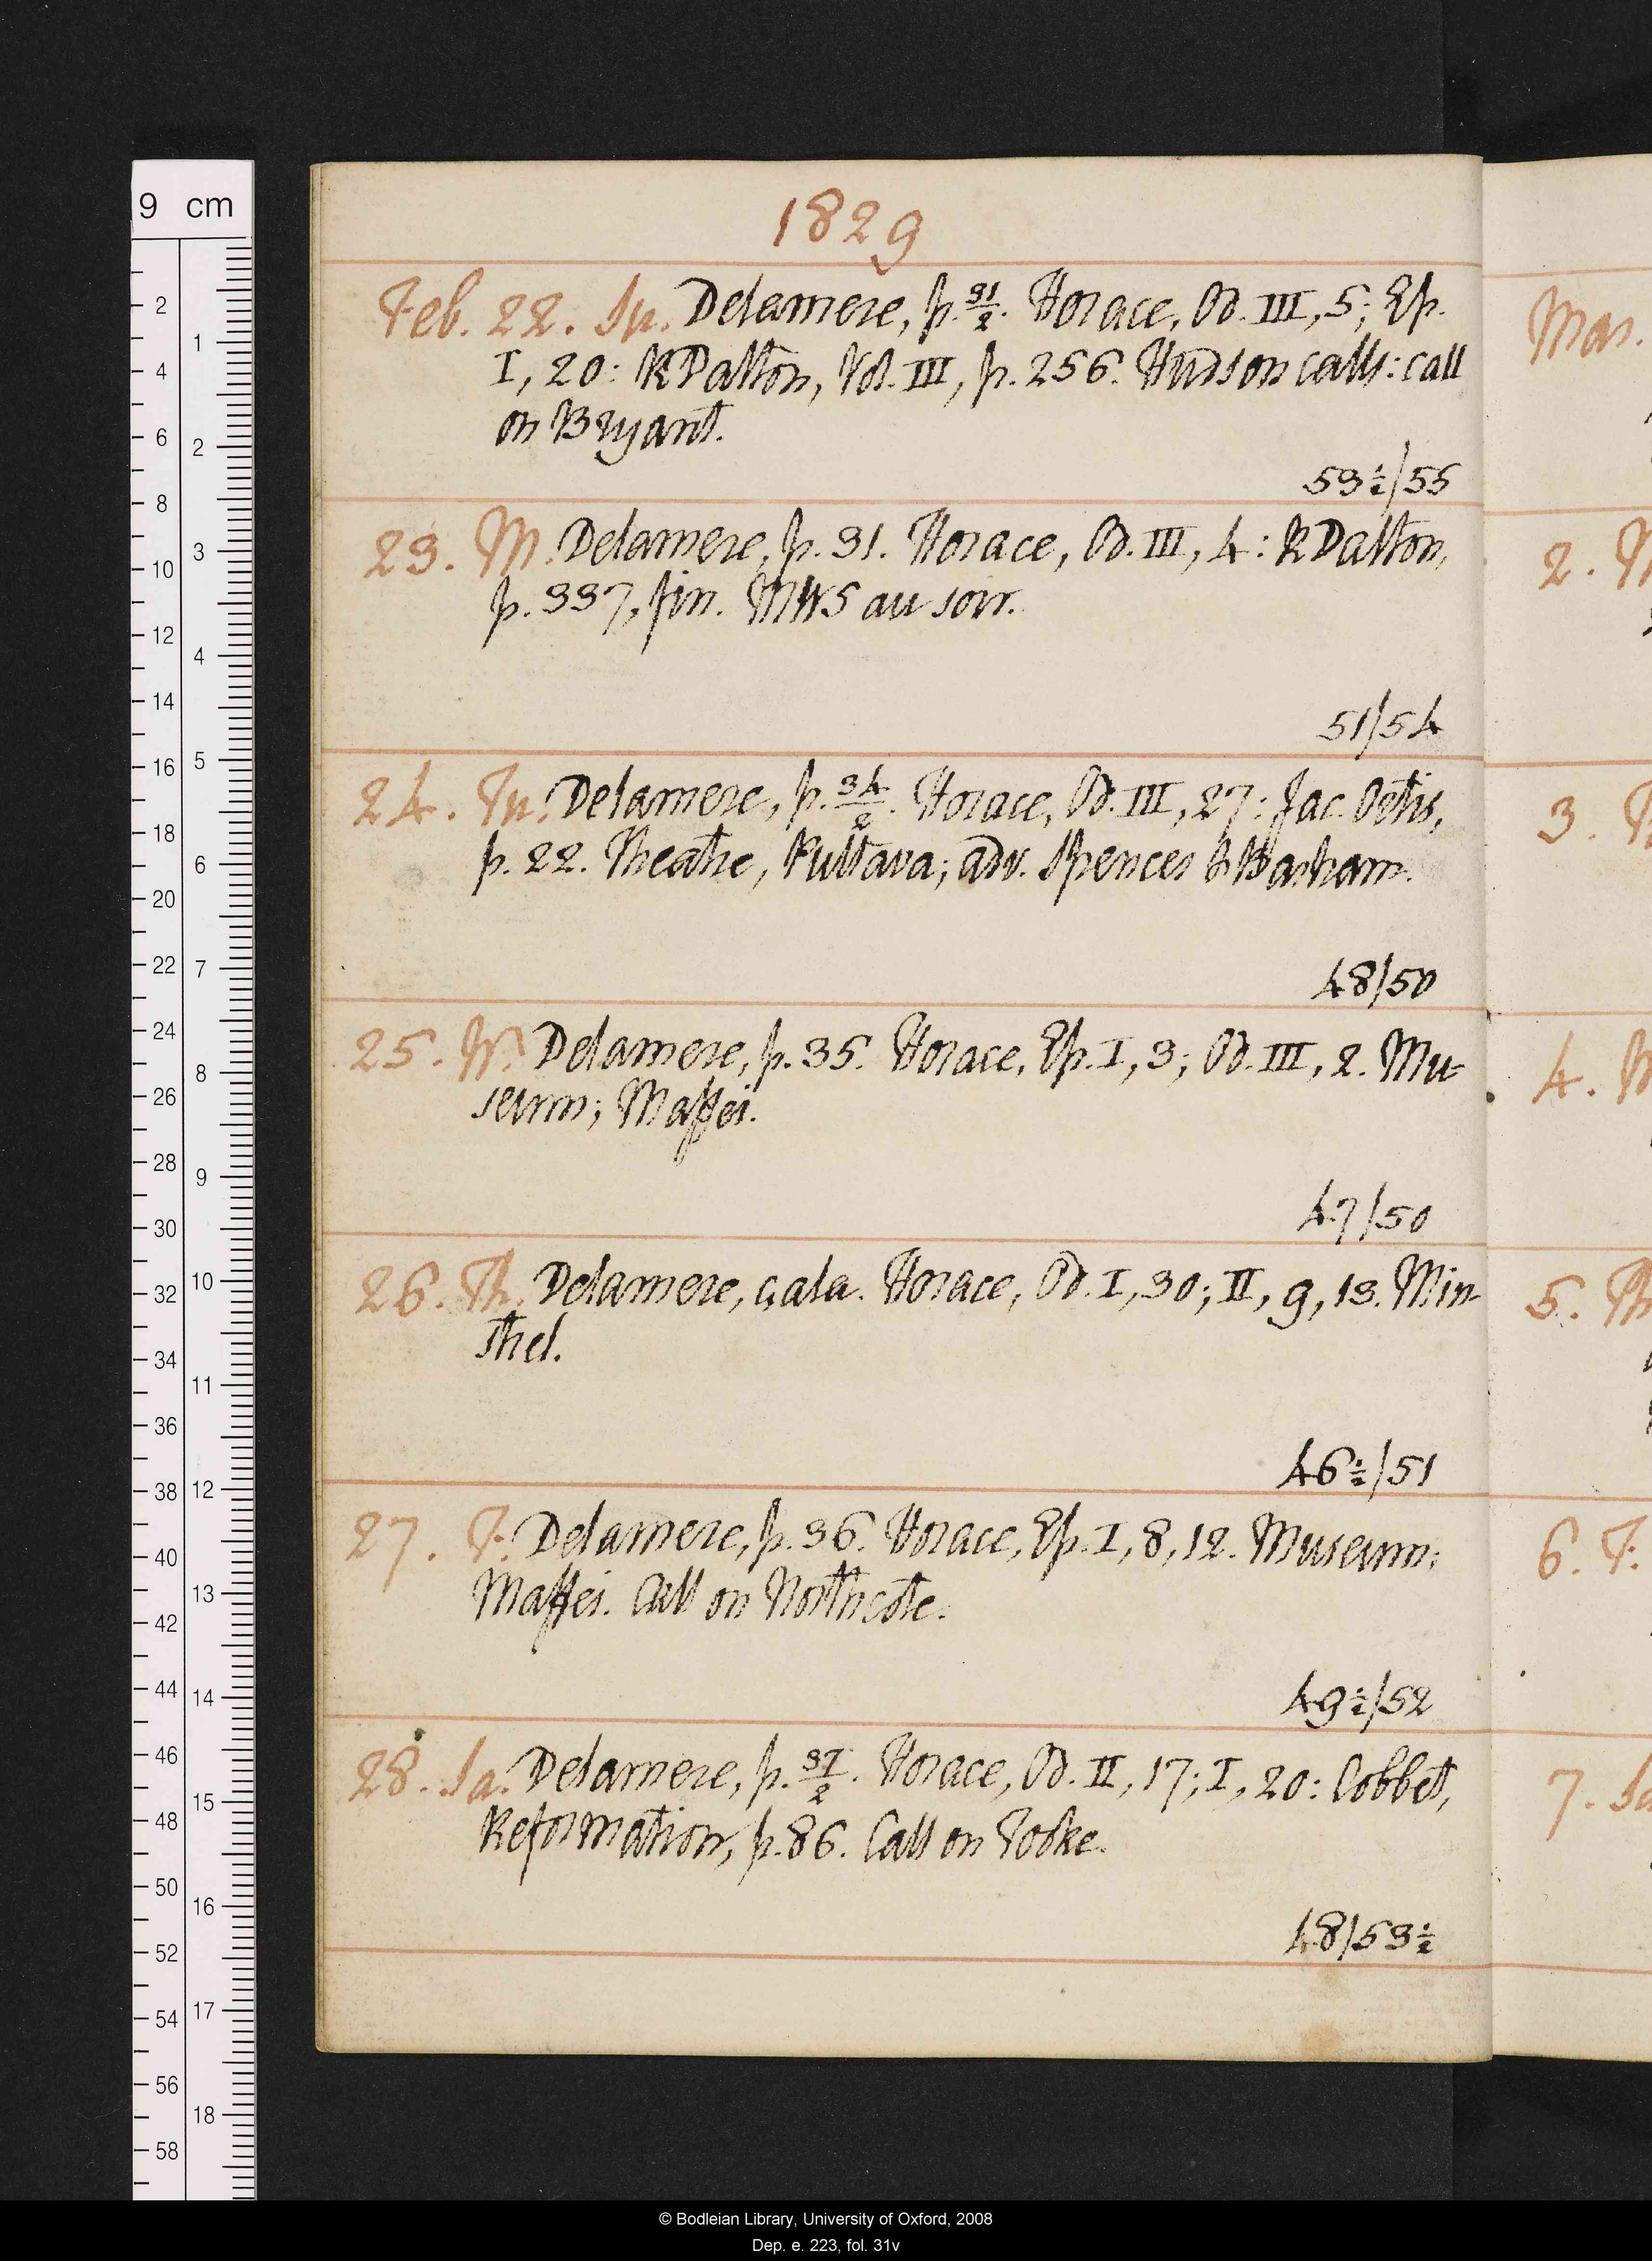 9 cm
1829
Feb. 22. Su. Delamere, p. 31/2. Horace, Od. III, 5; Ep.
I, 20: R Dalton, Vol. III, p. 256. Hudson calls: call
on Bryant.
53½/55
23. M. Delamere, p. 31. Horace, Od. III, 4: R Dalton,
p. 337, fin. MWS au soir.
51/54
24. Tu. Delamere, p. 34/2. Horace, Od. III, 27: Jac. Oetis,
p. 22. Theatre, Pultava; adv. Spences & Barham.
48/50
25. W. Delamere, p. 35. Horace, Ep. I, 3; Od. III, 2. Mu=
seum; Maffei.
47/50
26. Th. Delamere, çala. Horace, Od. I, 30; II, 9, 13. Min-
shel.
46½/51
27. F. Delamere, p. 36. Horace, Ep. I, 8, 12. Museum;
Maffei. Call on Northcote.
49½/52
28. Sa. Delamere, p. 37/2. Horace, Od. II, 17; I, 20: Cobbet,
Reformation, p. 86. Call on Tooke.
48/53½
Mar.
2.
3.
4.
5. Th
6. F.
7. Sa
© Bodleian Library, University of Oxford, 2008
Dep. e. 223, fol. 31v